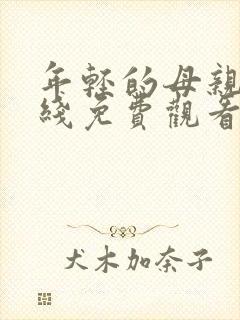 年轻的母親
綫免費觀看
犬木加奈子